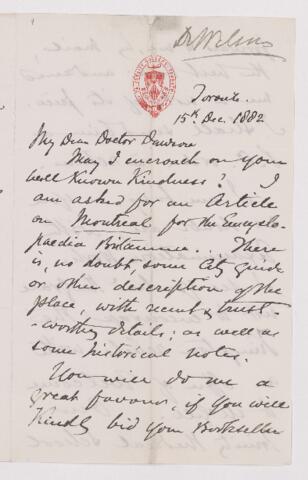 Dr Wilson
Toronto
15th Dec. 1882
My Dear Doctor Dawson
May I encroach on your
well known kindness? I
am asked for an Article
on Montreal for the Encyclo-
paedia Britannica... There
is, no doubt, some City guide
or other description of the
place, with recent & trust-
-worthy details; as well as
some historical notes.
You will do me a
great favour, if you will
kindly bid your Bookseller